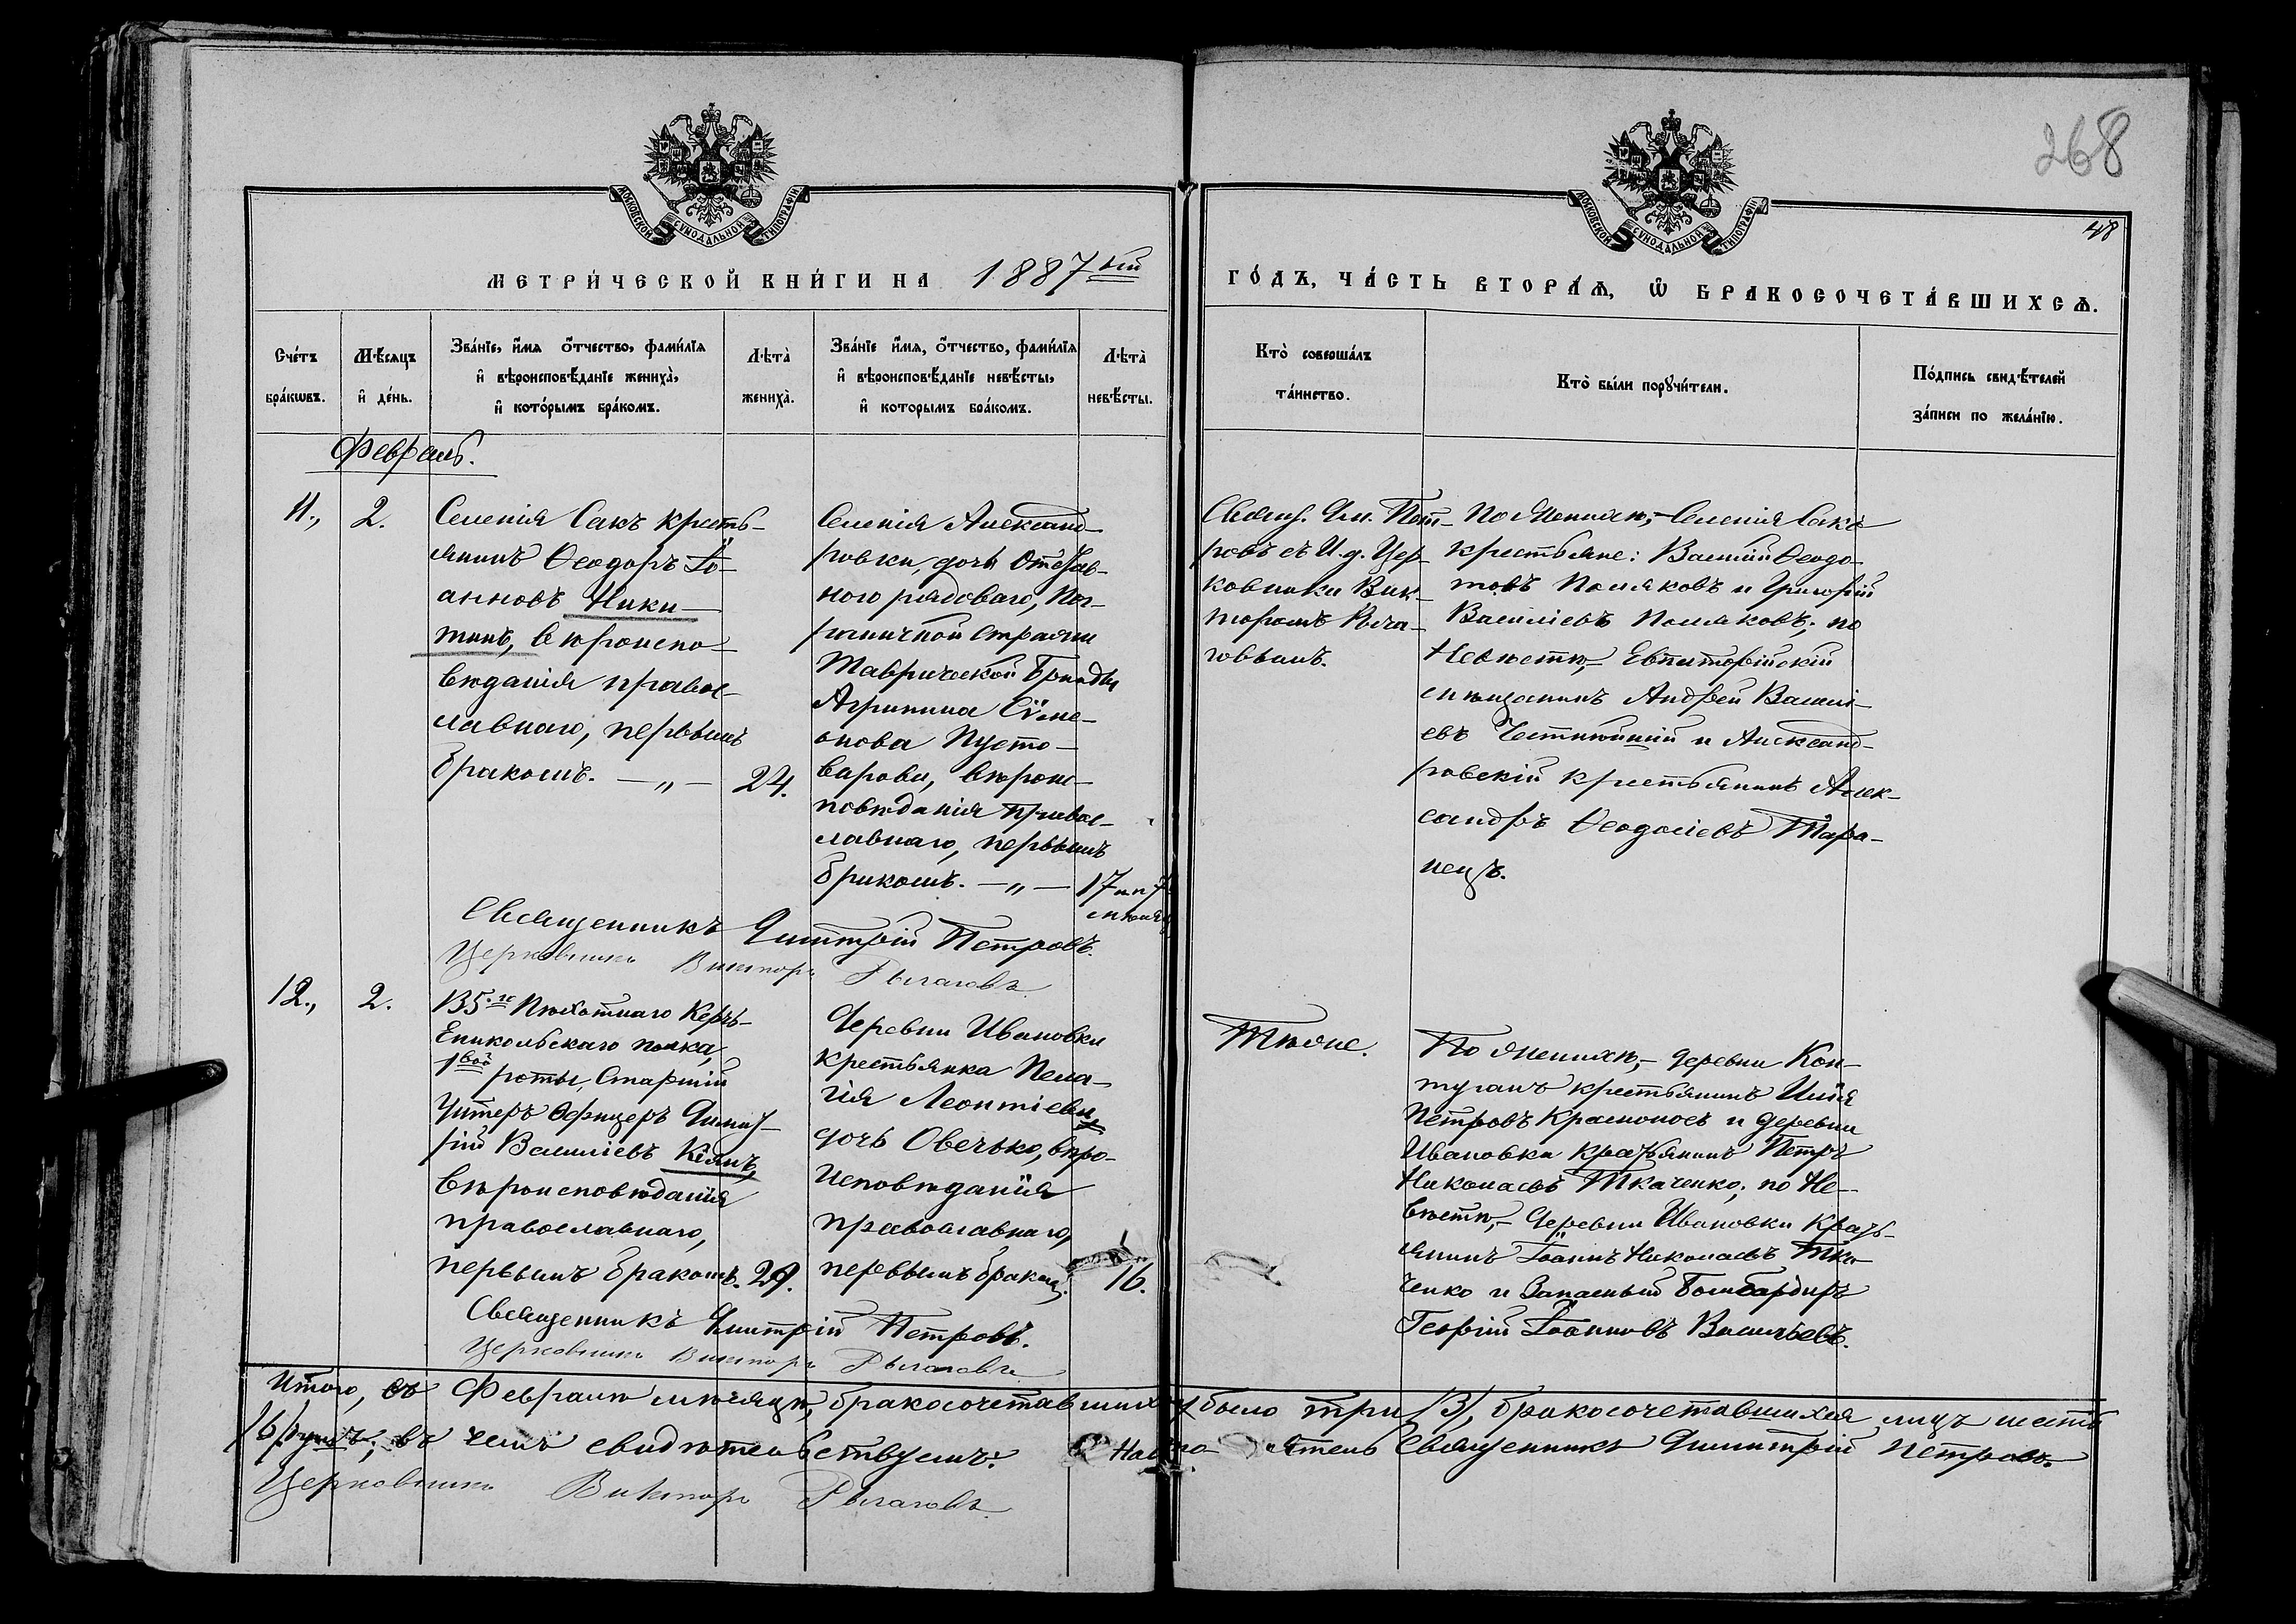 268
48
МОСКОВСКОЙ СѴНОДАЛЬНОЙ ТИПОГРАФІИ
МОСКОВСКОЙ СѴНОДАЛЬНОЙ ТИПОГРАФІИ
МЕТРИ́ЧЕСКОЙ КНИ́ГИ НА 1887 кій
ГО́ДЪ, ЧА́СТЬ ВТОРА́Ѧ, Ѽ БРАКОСОЧЕТА́ВШИХСѦ.
Сче́тъ бра́кѡвъ.
Мѣ́сяцъ и҆ де́нь.
Зва́нїе, и҆́мя ѻ҆́тчество, фами́лїя и҆ вѣроисповѣ́данїе жениха̀, и҆ кото́рымъ бра́комъ.
Лѣта̀ жениха̀.
Зва́нїе и҆́мя, ѻ҆́тчество, фами́лїя и҆ вѣроисповѣ́данїе невѣ́сты, и҆ которымъ бра́комъ.
Лѣта̀ невѣ́сты.
Кто̀ соверша́лъ та́инство.
Кто̀ бы́ли порꙋчи́тели.
По́дпись свидѣ́телей за́писи по жела́нїю.
Февраль.
11., 2.
Селенія Сакъ кресть-
янинъ Ѳеодоръ Іо-
анновъ Ники-
тинъ, вѣроиспо-
вѣданія правос-
лавнаго, первымъ
бракомъ. — „ — 24.
Селенія Александ-
ровки, дочь Отстав-
ного рядоваго, Пог-
раничной Стражи
Таврической Бригады
Агрипина Сѵме-
онова Пусто-
варова, вѣроис-
повѣданія правос-
лавнаго, первымъ
бракомъ. — „ — 17 и 7
мѣсяц
Свящ. Дм. Пет-
ровъ съ И. д. Цер-
ковника Вик-
торомъ Рыча-
говымъ.
По Женихѣ,- Селенія Сакъ
крестьяне: Василій Ѳеодо-
товъ Поляковъ и Григорій
Васильевъ Поляковъ; по
Невѣстѣ,- Евпаторійскій
мѣщанинъ Андрей Василі-
евъ и Александ-
ровскій крестьянинъ Алек-
сандръ Ѳеодосіевъ Тара-
нецъ.
Священникъ Димитрій Петровъ.
Церковникъ Викторъ Рычаговъ
12., 2.
135.го Пѣхотнаго Керчь-
Еникольскаго полка,
1вой роты, Старшій
Унтеръ Офицеръ Димит-
рій Василіевъ Кіянъ,
вѣроисповѣданія
православнаго,
первымъ бракомъ. 29.
Деревни Ивановки
крестьянка Пела-
гія Леонтіева
дочь Овечько, вѣро-
исповѣданія
православнаго,
первымъ бракомъ. 16.
Тѣже.
По Женихѣ,- деревни Кон-
туганъ крестьянинъ Илія
Петровъ Красноносъ и деревни
Ивановки крестьянинъ Петръ
Николаевъ Ткаченко; по Не-
вѣстѣ,- Деревни Ивановки крест-
янинъ Іоаннъ Николаевъ Тка-
ченко и Запасный Бомбардиръ
Георгій Іоанновъ Васильевъ.
Священникъ Димитрій Петровъ.
Церковникъ Викторъ Рычаговъ
Итого, въ Февралѣ мѣсяцѣ, бракосочетавшихся было три /3/, бракосочетавшихся лицъ шесть
/6/ душъ; въ чемъ свидѣтельствуемъ: Настоятель Священникъ Димитрій Петровъ.
Церковникъ Викторъ Рычаговъ